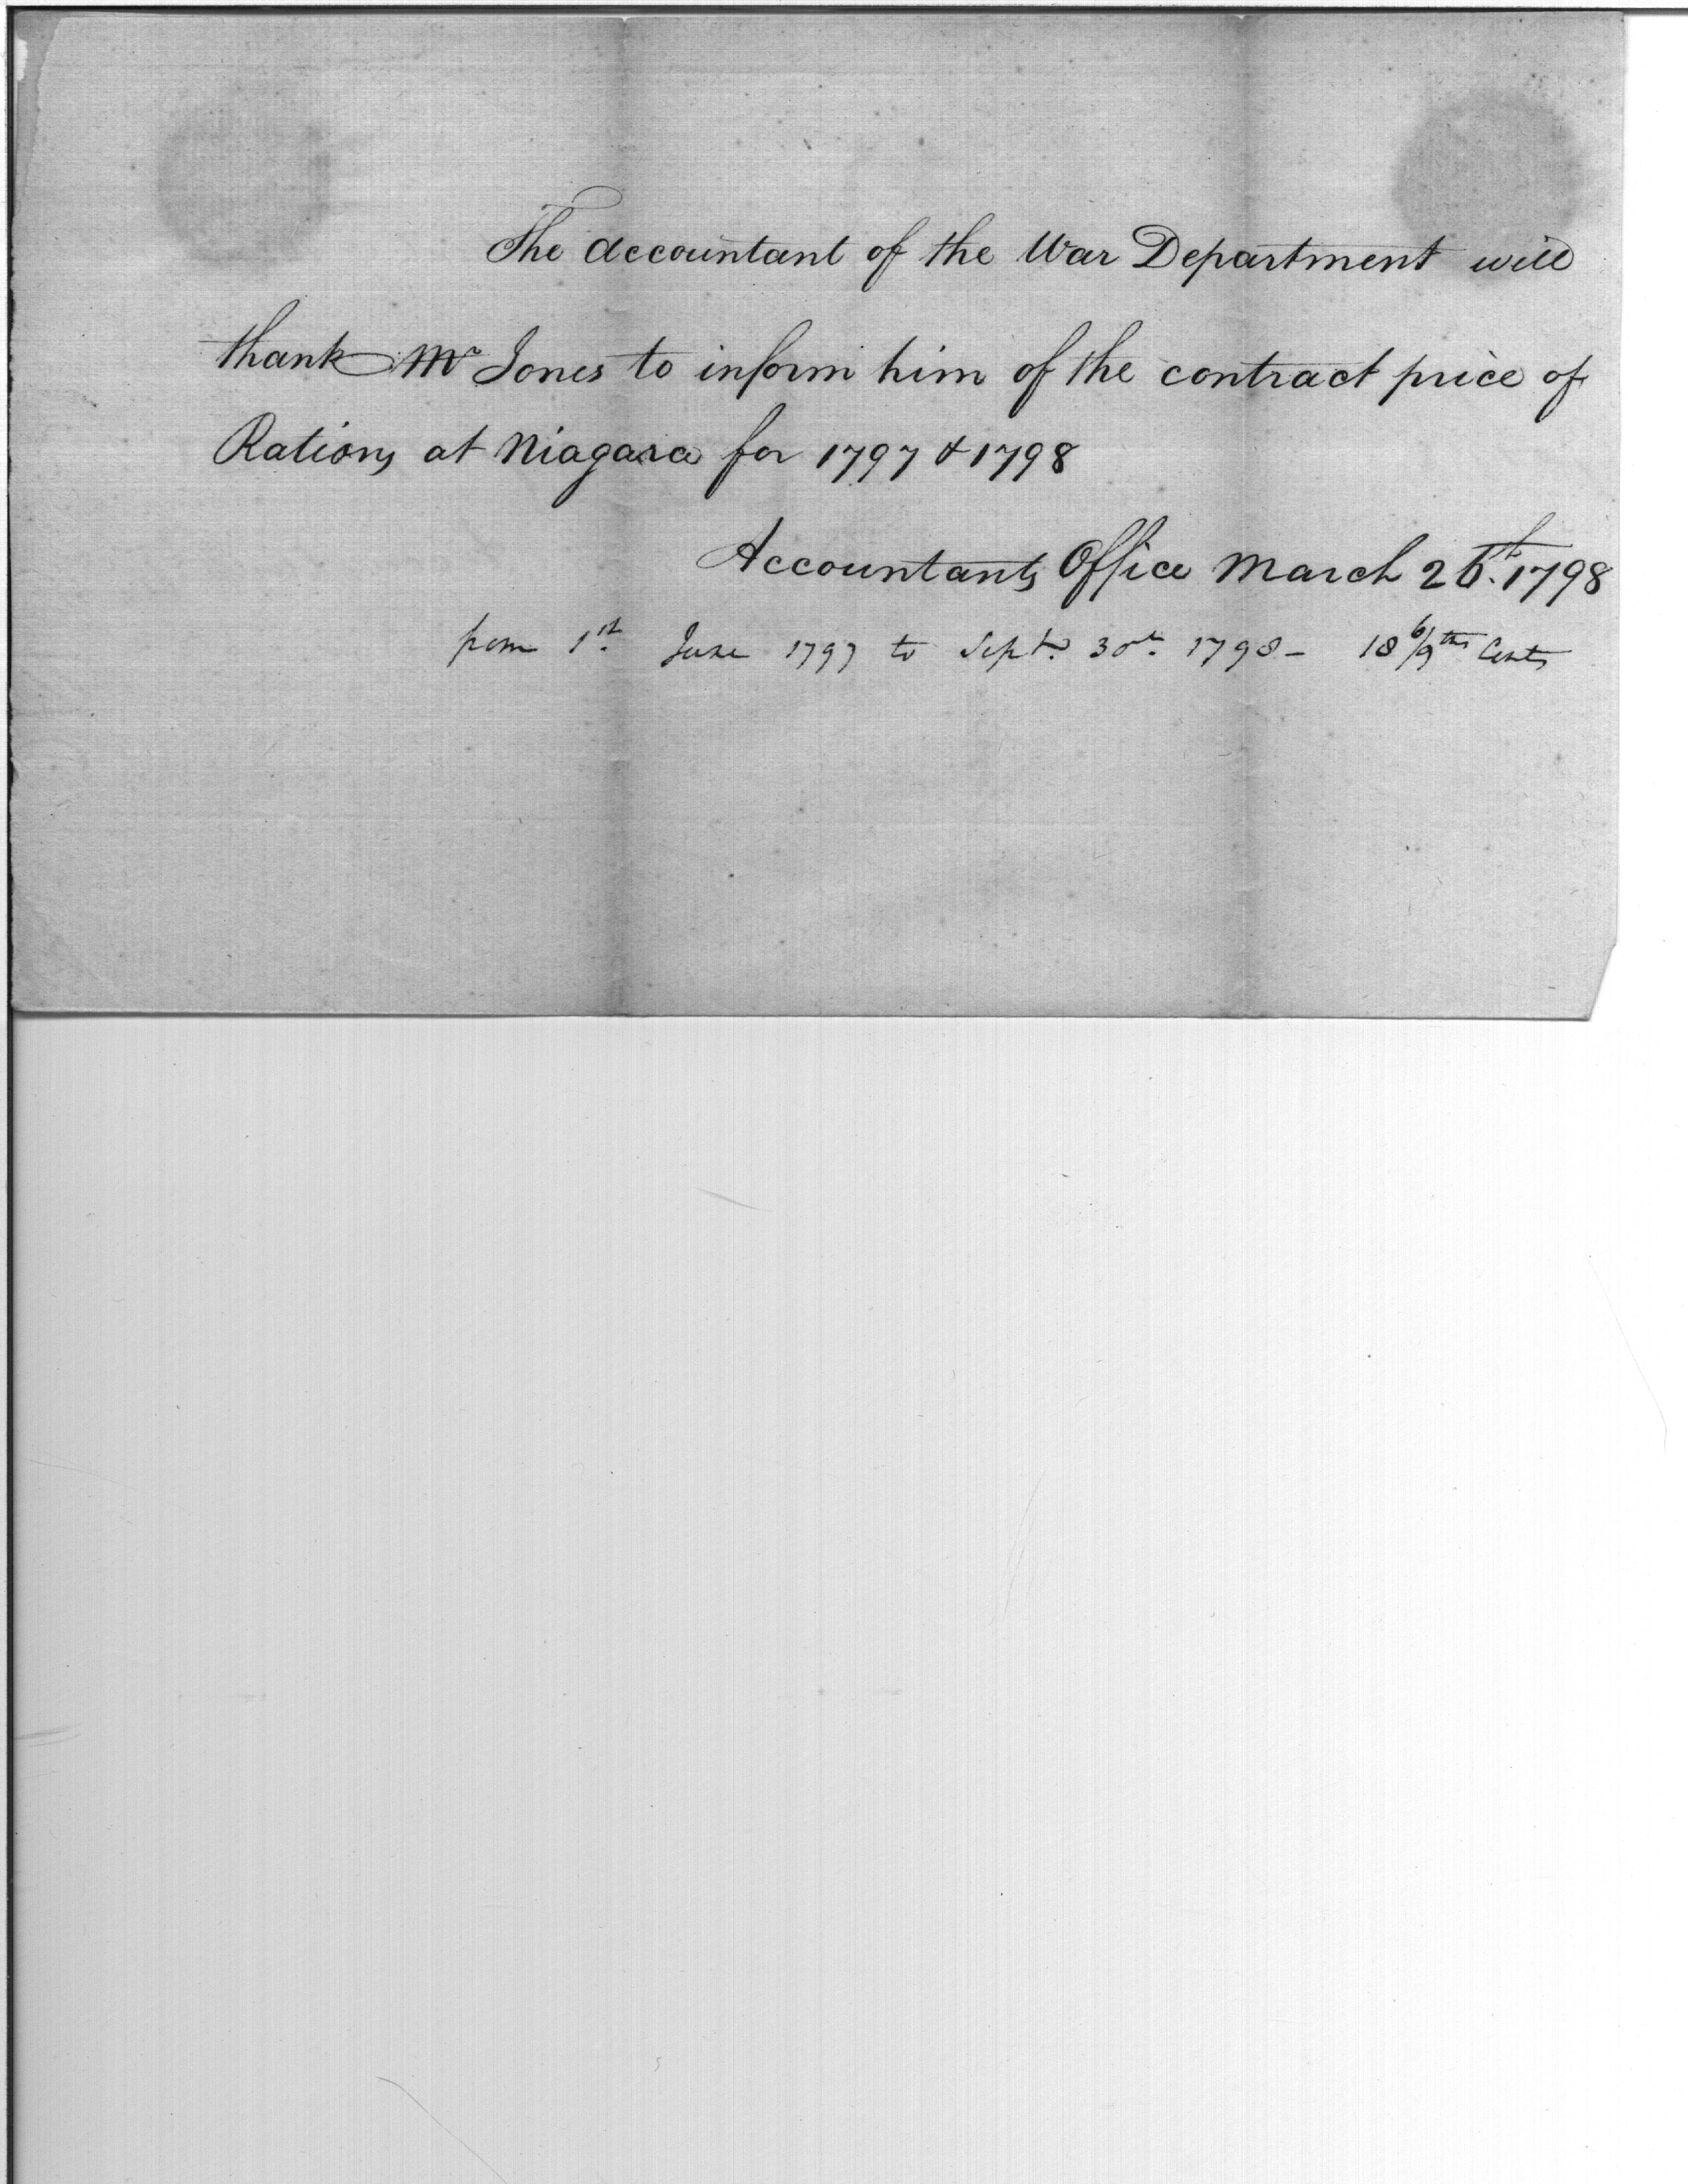 The Accountant of the War Department will
thank Mr Jones to inform him of the contract price of
Rations at Niagara for 1797 & 1798
Accountants Office March 26th. 1798
from 1st. June 1797 to Sept. 30th. 1798 - 18 6/9ths Cents